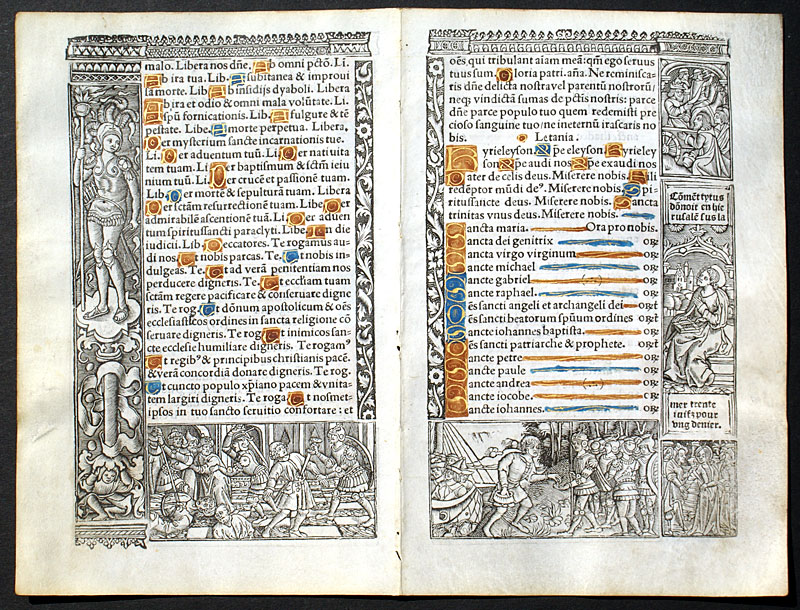 malo. Libera nos dñe. Ab omni pctõ. Li.
Ab ira tua. Lib. A subitanea & improui
sa morte. Lib. Ab insidijs dyaboli. Libera
Ab ira et odio & omni mala volũtate. Li.
A spũ fornicationis. Lib. A fulgure & tẽ
pestate. Libe. A morte perpetua. Libera.
Per mysterium sancte incarnationis tue.
Li. Per aduentum tuũ. Li. Per natiuita
tem tuam. Li. Per baptismum & sctm̃ ieiu
nium tuũ. Li. Per crucẽ et passionẽ tuam.
Lib. Per mortẽ & sepulturã tuam. Libera
Per sctãm resurrectionẽ tuam. Lib. Per
admirabilẽ ascentionẽ tuã. Li. Per aduen
tum spiritussancti paraclyti. Libe. In die
iudicii. Lib. Peccatores. Te rogamus au
di nos Ut nobis parcas. Te. Ut nobis in
dulgeas. Te. Ut ad verã penitentiam nos
perducere digneris. Te. Ut eccliam tuam
sctãm regere pacificare & conseruare digne
ris. Te rog. Ut dõnum apostolicum & oẽs
ecclesiasticos ordines in sancta religione cõ
seruare digneris. Te rog. Ut inimicos san-
cte ecclesie humiliare digneris. Te rogam⁹
Ut regib⁹ & principibus christianis pacẽ.
& verã concordiã donare digneris. Te rog.
Ut cuncto populo xp̃iano pacem & vnita-
tem largiri digneris. Te roga Ut nosmet-
ipsos in tuo sancto seruitio confortare: et
oẽs, qui tribulant aĩam meã: qm̃ ego seruus
tuus sum. Gloria patri. aña. Ne reminisca-
ris dñe delicta nostra vel parentũ nostrorũ/
neq; vindictã sumas de pctĩs nostris: parce
dñe parce populo tuo quem redemisti pre
cioso sanguine tuo/ne ineternũ irascaris no
bis. Letania.
Kyrieleyson. Xp̃e eleyson. Kyrieley
son. Xp̃e audi nos Xp̃e exaudi nos
Pater de celis deus. Miserere nobis. Fili
redẽptor mũdi de⁹. Miserere nobis. Spi-
ritussancte deus. Miserere nobis. Sancta
trinitas vnus deus. Miserere nobis.
Sancta maria. Ora pro nobis.
Sancta dei genitrix or̃
Sancta virgo virginum or̃
Sancte michael or̃
Sancte gabriel or̃
Sancte raphael. or̃
Oẽs sancti angeli et archangeli dei or̃
Oẽs sancti beatorum spũum ordines or̃
Sancte iohannes baptista. or̃
Oẽs sancti patriarche & prophete. or̃
Sancte petre or̃
Sancte paule or̃
Sancte andrea or̃
Sancte iocobe. or̃
Sancte iohannes. or̃
Cõment tytus
dõnoit en hie
rusalẽ sus la
mer trente
iuifz pour
vng denier.